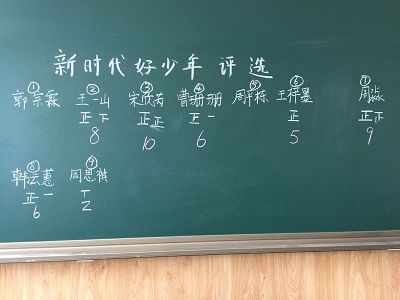 新时代好少年评选
① ② ③ ④ ⑤ ⑥ ①
郭宗霖 王一山 宋欣芮 曹珊珊 周栋 王梓墨 周淼
正下 正正 正一 正 正下
8 10 6 5 9
⑧ ⑨
韩云蕙 周思祺
正一 丅
6 2